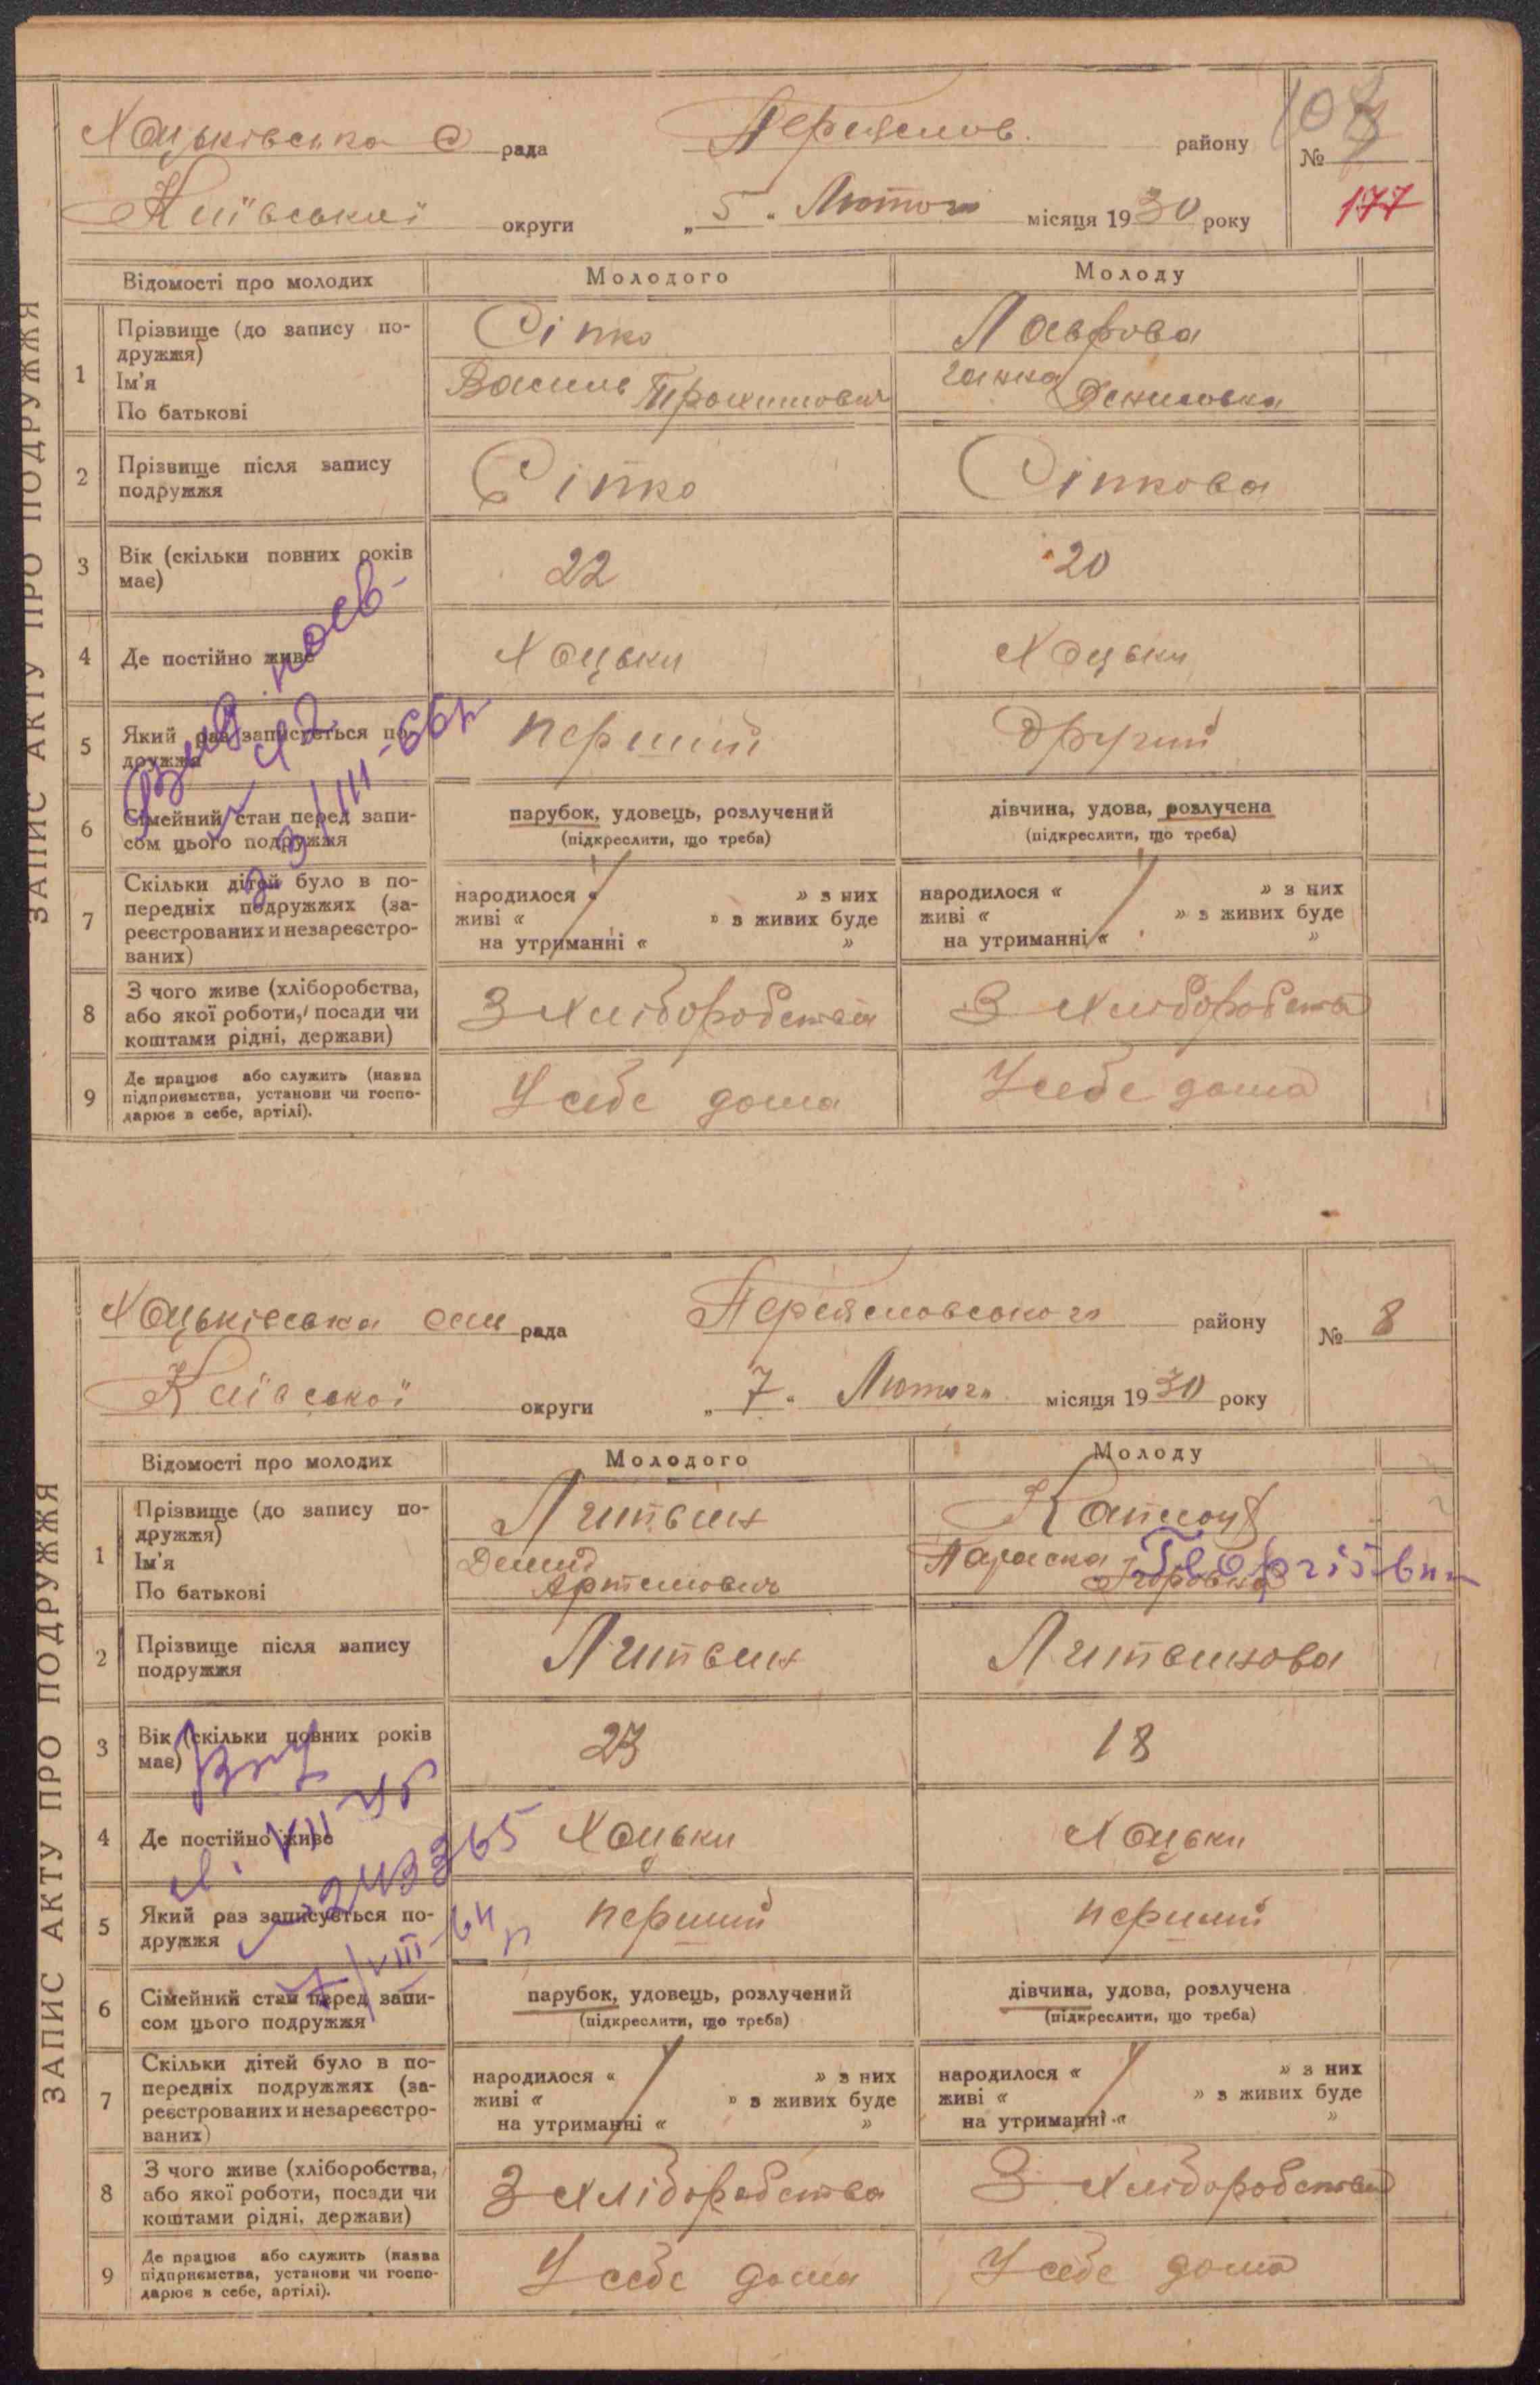 ЗАПИС АКТУ ПРО ПОДРУЖЖЯ
Хоцьківська с рада Переяслов. району №
107
177
Київської округи „5“ Лютого місяця 1930 року
Відомості про молодих Молодого Молоду
1 Прізвище (до запису подружжя) Сіпко Лаврова
Ім'я Василь Ганна
По батькові Трохимович Денисовна
2 Прізвище після запису подружжя Сіпко Сіпкова
3 Вік (скільки повних років має) 22 20
4 Де постійно живе Хоцьки Хоцьки
5 Який раз записується подружжя перший другий
6 Сімейний стан перед записом цього подружжя парубок, удовець, розлучений дівчина, удова, розлучена
(підкреслити, що треба) (підкреслити, що треба)
7 Скільки дітей було в попередніх подружжях (зареєстрованих и незареєстрованих) народилося « » з них народилося « » з них
живі « » з живих буде живі « » з живих буде
на утриманні « » на утриманні « »
8 З чого живе (хліборобства, або якої роботи, посади чи коштами рідні, держави) З хліборобства З хліборобства
9 Де працює або служить (назва підприємства, установи чи господарює в себе, артілі). У себе дома У себе дома
ЗАПИС АКТУ ПРО ПОДРУЖЖЯ
Хоцьківська сіл рада Переясловського району № 8
Київської округи „7“ Лютого місяця 1930 року
Відомості про молодих Молодого Молоду
1 Прізвище (до запису подружжя) Литвин
Ім'я Демид Параска
По батькові Артемович
2 Прізвище після запису подружжя Литвин Литвинова
3 Вік (скільки повних років має) 23 18
4 Де постійно живе Хоцьки Хоцьки
5 Який раз записується подружжя перший перший
6 Сімейний стан перед записом цього подружжя парубок, удовець, розлучений дівчина, удова, розлучена
(підкреслити, що треба) (підкреслити, що треба)
7 Скільки дітей було в попередніх подружжях (зареєстрованих и незареєстрованих) народилося « » з них народилося « » з них
живі « » з живих буде живі « » з живих буде
на утриманні « » на утриманні « »
8 З чого живе (хліборобства, або якої роботи, посади чи коштами рідні, держави) З хліборобства З хліборобства
9 Де працює або служить (назва підприємства, установи чи господарює в себе, артілі). У себе дома У себе дома